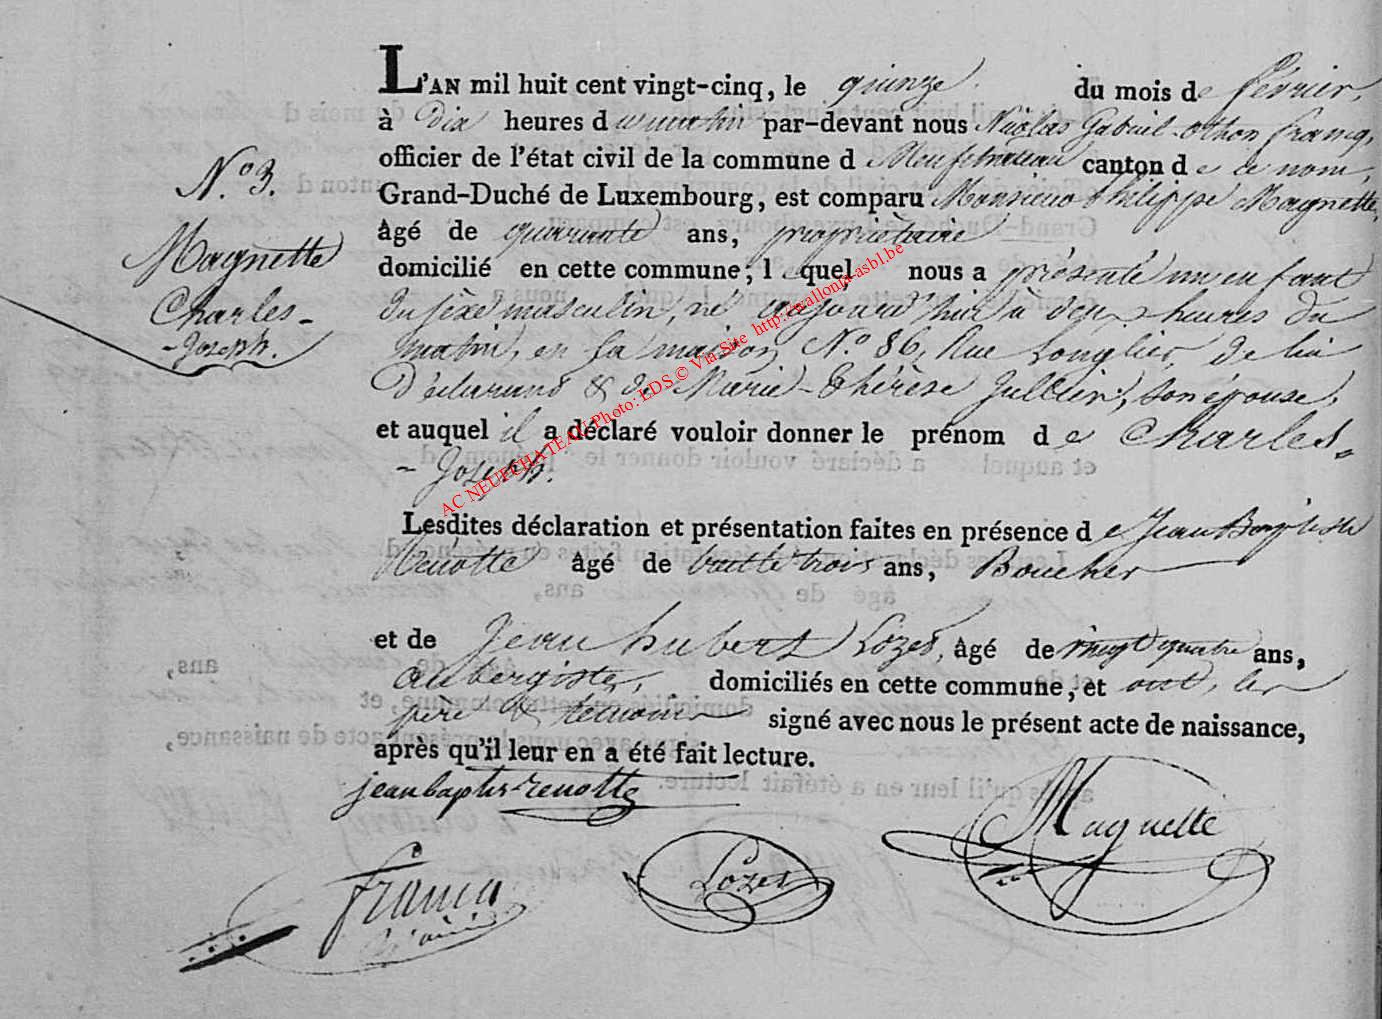 L'AN mil huit cent vingt-cinq, le quinze du mois de février,
à dix heures du matin par-devant nous Nicolas Gabriel Othon Francq,
officier de l'état civil de la commune d Neufchateau canton de ce nom,
N.º 3.
Grand-Duché de Luxembourg, est comparu Monsieur Philippe Magnette,
âgé de quarante ans, propriétaire
Magnette
domicilié en cette commune; lequel nous a présenté un enfant
Charles-
du sèxe masculin, né aujourd'hui à deux heures du
-Joseph.
matin, en sa maison, N.º 86, Rue Longlier, de lui
Déclarant & de Marie-Thérèse Jullien, son épouse,
et auquel il a déclaré vouloir donner le prénom de Charles-
-Joseph.
Lesdites déclaration et présentation faites en présence de Jean Baptiste
Renotte âgé de trente trois ans, Boucher
et de Jean hubert Lozet, âgé de vingt quatre ans,
aubergiste, domiciliés en cette commune, et ont, les
père & témoins signé avec nous le présent acte de naissance,
après qu'il leur en a été fait lecture.
jean baptis renotte
Magnette
Lozet
francq
AC NEUFCHATEAU Photo: LDS © Via Site http://wallonia-asbl.be